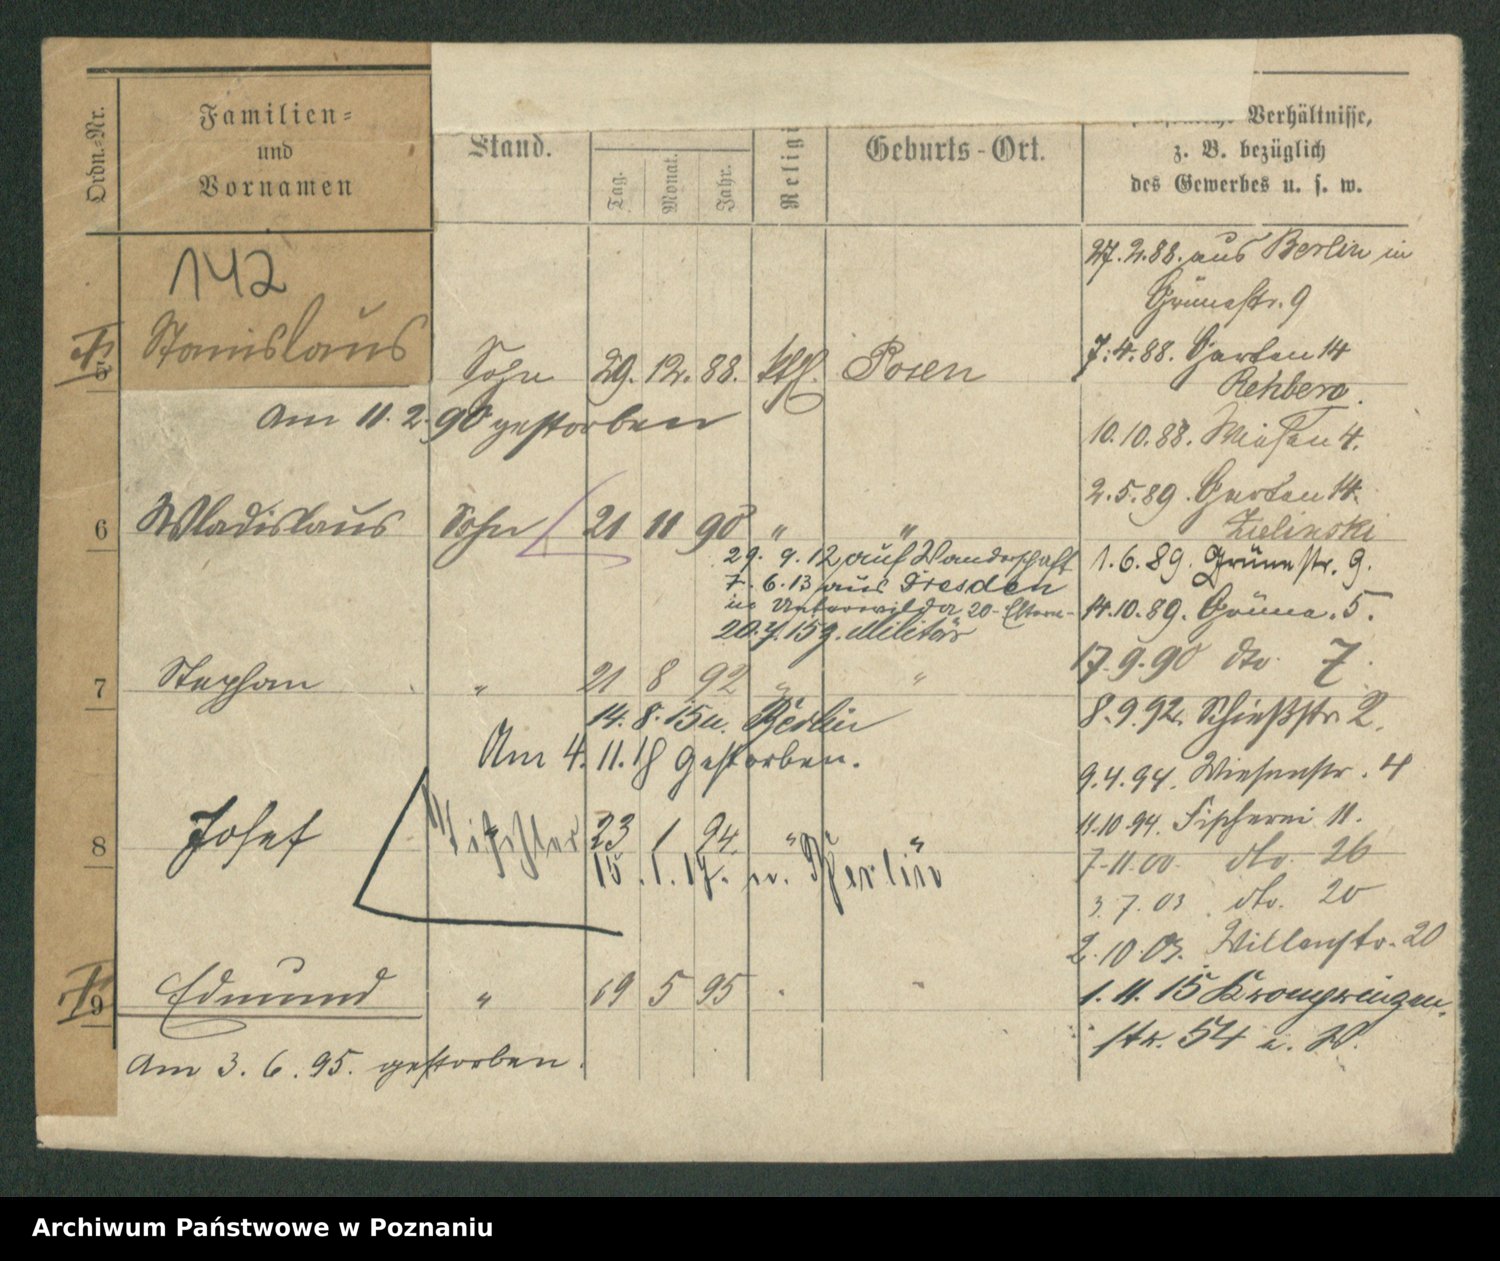 Ordn.-Nr.
Familien-
und
Vornamen
Stand.
Tag.
Monat.
Jahr.
Religi
Geburts-Ort.
Verhältnisse,
z. B. bezüglich
des Gewerbes u. s. w.
142
5 Stanislaus Sohn 29. 12. 88. kth. Posen
am 11. 2. 90 gestorben
6 Wladislaus Sohn 21 11 90 " "
29. 9. 12 auf Wanderschaft
7. 6. 13 aus Dresden
in Unterwilda 20 - Eltern -
20. 7. 15 g. Militär
7 Stephan " 21 8 92 " "
14. 8. 15 u. Berlin
Am 4. 11. 18 gestorben.
8 Josef Tischler 23 1 94. " "
15. 1. 17. n. Berlin
9 Edmund " 19 5 95
am 3. 6. 95. gestorben.
27. 2. 88. aus Berlin in
Grünestr. 9
7. 4. 88. Garten 14
Rehberg.
10. 10. 88. Wiesen 4.
2. 5. 89. Garten 14.
Zielinski
1. 6. 89. Grünestr. 9.
14. 10. 89. Grüne. 5.
17. 9. 90 dto 7.
8. 9. 92. Schießstr. 2.
9. 4. 94. Wiesenstr. 4
11. 10. 94. Fischerei 11.
7. 11. 00. dto. 26
3. 7. 03. dto. 20
2. 10. 03. 20
1. 11. 15 Kronprinzen-
str. 54 i. W.
Archiwum Państwowe w Poznaniu